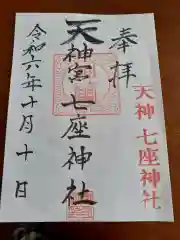 奉拝
天神宮七座神社
令和六年十月十日
天神 七座神社